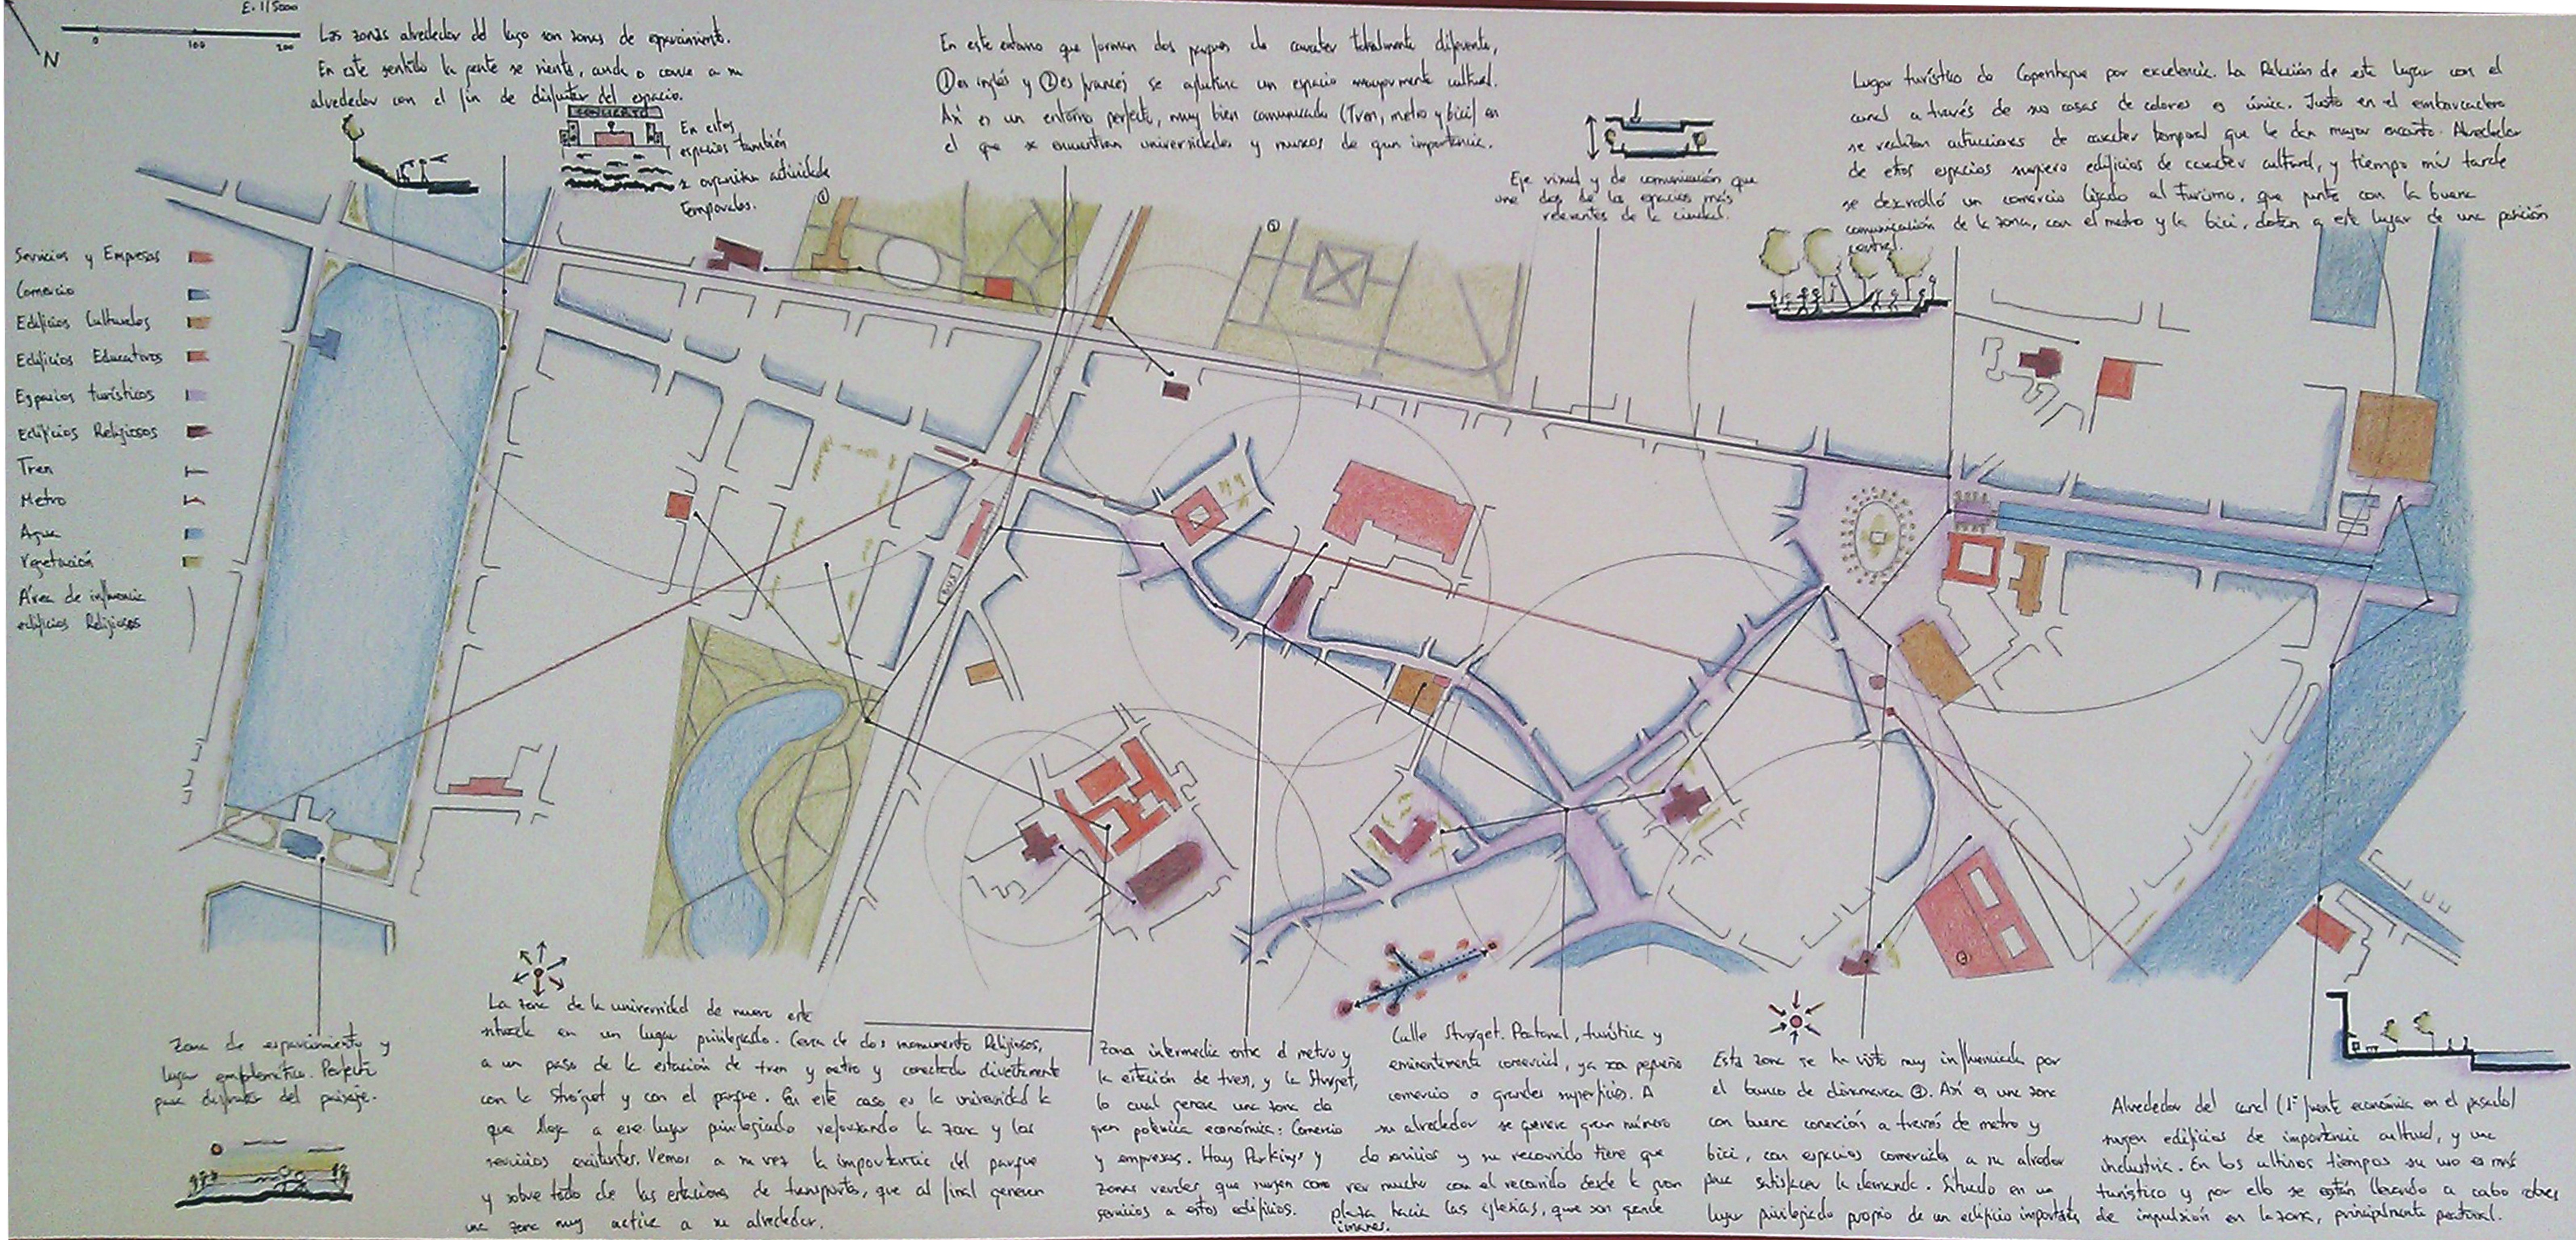 E. 1/5000
0 100 200
N
Las zonas alrededor del lago son zonas de esparcimiento.
En este sentido la gente se sienta, anda o corre a su
alrededor con el fin de disfrutar del espacio.
CONCIERTO
En estos
espacios también
se organizan actividade
temporales.
En este entorno que forman dos parques de caracter totalmente diferente,
① es inglés y ② es francés se aglutina un espacio mayormente cultural.
Así es un entorno perfecto, muy bien comunicado (Tren, metro y bici) en
el que se encuentran universidades y museos de gran importancia.
Eje visual y de comunicación que
une dos de los espacios más
relevantes de la ciudad.
Lugar turístico de Copenhague por excelencia. La Relación de este lugar con el
canal a través de sus casas de colores es única. Justo en el embarcadero
se realizan actuaciones de caracter temporal que le dan mayor encanto. Alrededor
de estos espacios surgiero edificios de caracter cultural, y tiempo más tarde
se desarrolló un comercio ligado al Turismo, que junto con la buena
comunicación de la zona, con el metro y la bici, dotan a este lugar de una posición
central.
Servicios y Empresas
Comercio
Edificios Culturales
Edificios Educativos
Espacios turísticos
Edificios Religiosos
Tren
Metro
Agua
Vegetación
Área de influencia
edificios Religiosos
①
②
BUS
③
Zona de esparcimiento y
lugar emblemático. Perfecta
para disfrutar del paisaje.
La zona de la universidad de nuevo este
situada en un lugar privilegiado. Cerca de dos monumento Religiosos,
a un paso de la estación de tren y metro y conectada directamente
con la Strøget y con el parque. En este caso es la universidad la
que llega a ese lugar privilegiado reforzando la zona y los
servicios existentes. Vemos a su vez la importancia del parque
y sobre todo de las estaciones de transportes, que al final generan
una zona muy activa a su alrededor.
Zona intermedia entre el metro y
la estación de tren, y la Strøget,
lo cual genera una zona de
gran potencia económica: Comercio
y empresas. Hay Parkings y
zonas verdes que surgen como
servicios a estos edificios.
Calle Strøget. Peatonal, turística y
eminentemente comercial, ya sea pequeño
comercio o grandes superficies. A
su alrededor se genera gran número
de servicios y su recorrido tiene que
ver mucho con el recorrido desde la gran
plaza hacia las iglesias, que son grande
Esta zona se ha visto muy influenciada por
el banco de dinamarca ③. Así es una zona
con buena conexión a través de metro y
bici, con espacios comerciales a su alrededor
para satisfacer la demanda. Situado en un
lugar privilegiado propio de un edificio importante
Alrededor del canal (1ª fuente económica en el pasado)
surgen edificios de importancia cultural, y una
industria. En los ultimos tiempos su uso es más
turístico y por ello se están llevando a cabo obras
de impulsión en la zona, principalmente peatonal.